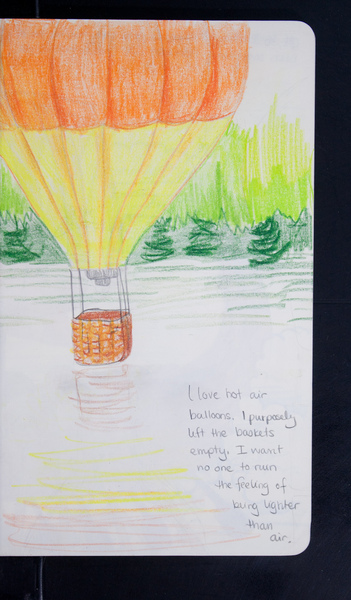 I love hot air
balloons. I purposely
left the baskets
empty. I want
no one to ruin
the feeling of
being lighter
than
air.